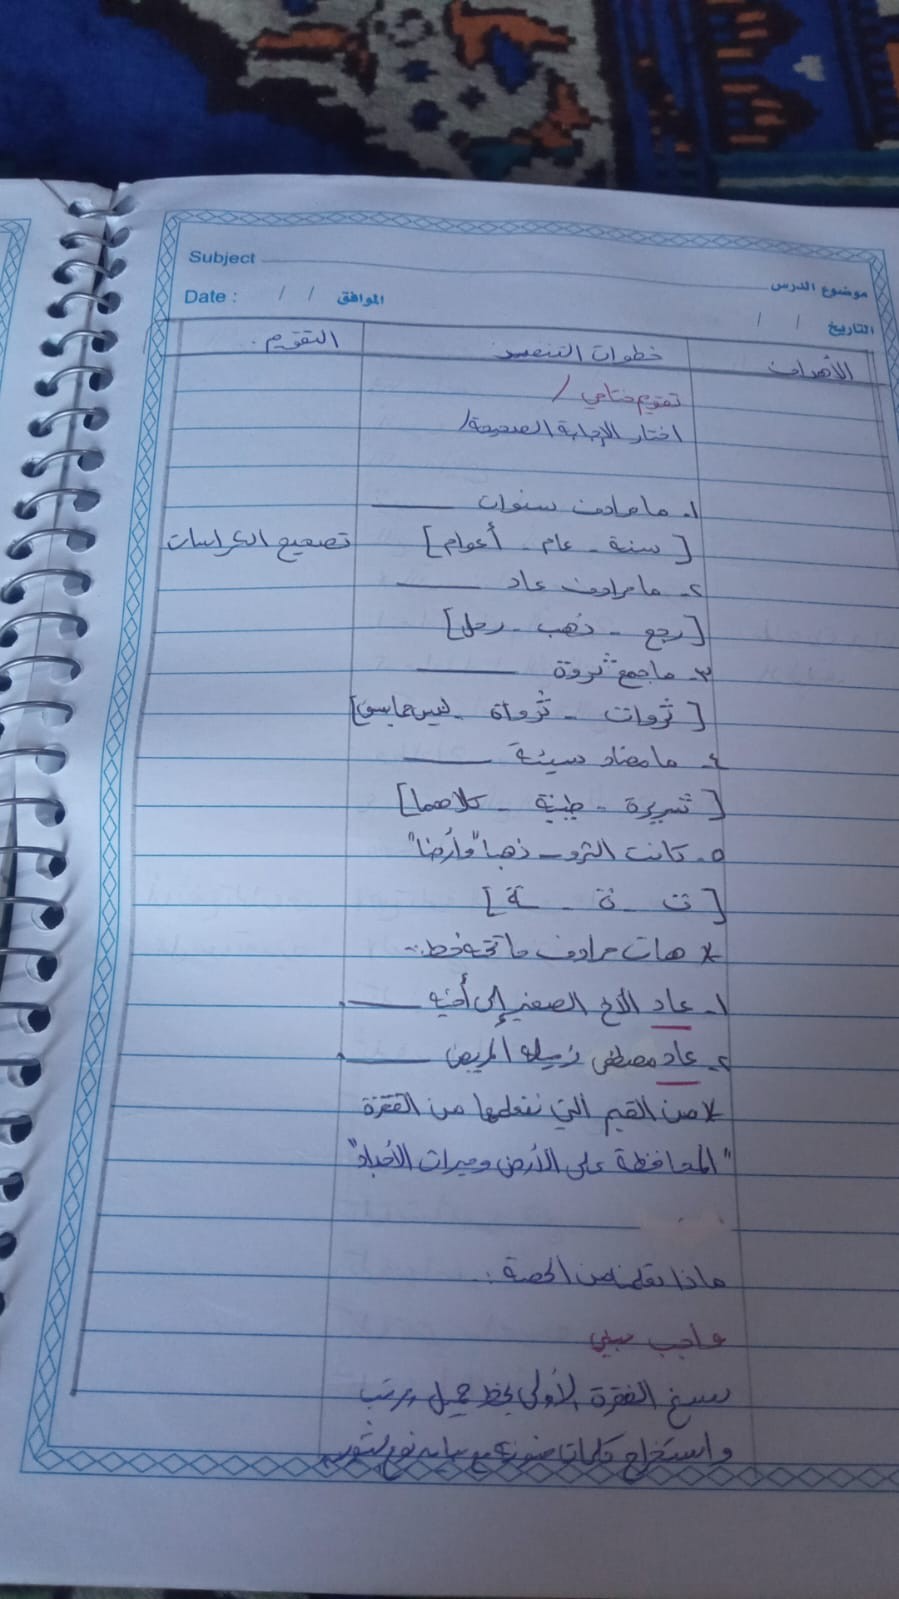 Subject
موضوع الدرس
Date : / / الموافق
التاريخ / /
الأهداف
خطوات التنفيذ
التقويم.
تقويم ختامي /
اختار الإجابة الصحيحة/
١- ما مرادف سنوات ـــــ
[سنة - عام - أعوام]
تصحيح الكراسات
٢- ما مرادف عاد ـــــ
[رجع - ذهب - رحل]
٣- ما جمع "ثروة ـــــ
[ثروات - ثرواة - ليس مما سبق]
٤- ما مضاد سيئة ـــــ
[شريرة - طيبة - كلاهما]
٥- كانت الثرو ـ ذهبا" وأرضا"
[ت - ة - ـة]
* هات مرادف ما تحته خط:-
١- عاد الأخ الصغير إلى أخيه ـــــ.
٢- عاد مصطفى زميله المريض ـــــ.
* من القيم التي نتعلمها من الفقرة
"المحافظة على الأرض وميراث الأجداد"
ماذا تعلمنا من الحصة :
واجب بيتي
نسخ الفقرة الأولى بخط جميل ومرتب
واستخراج كلمات منونة مع بيان نوع التنوين